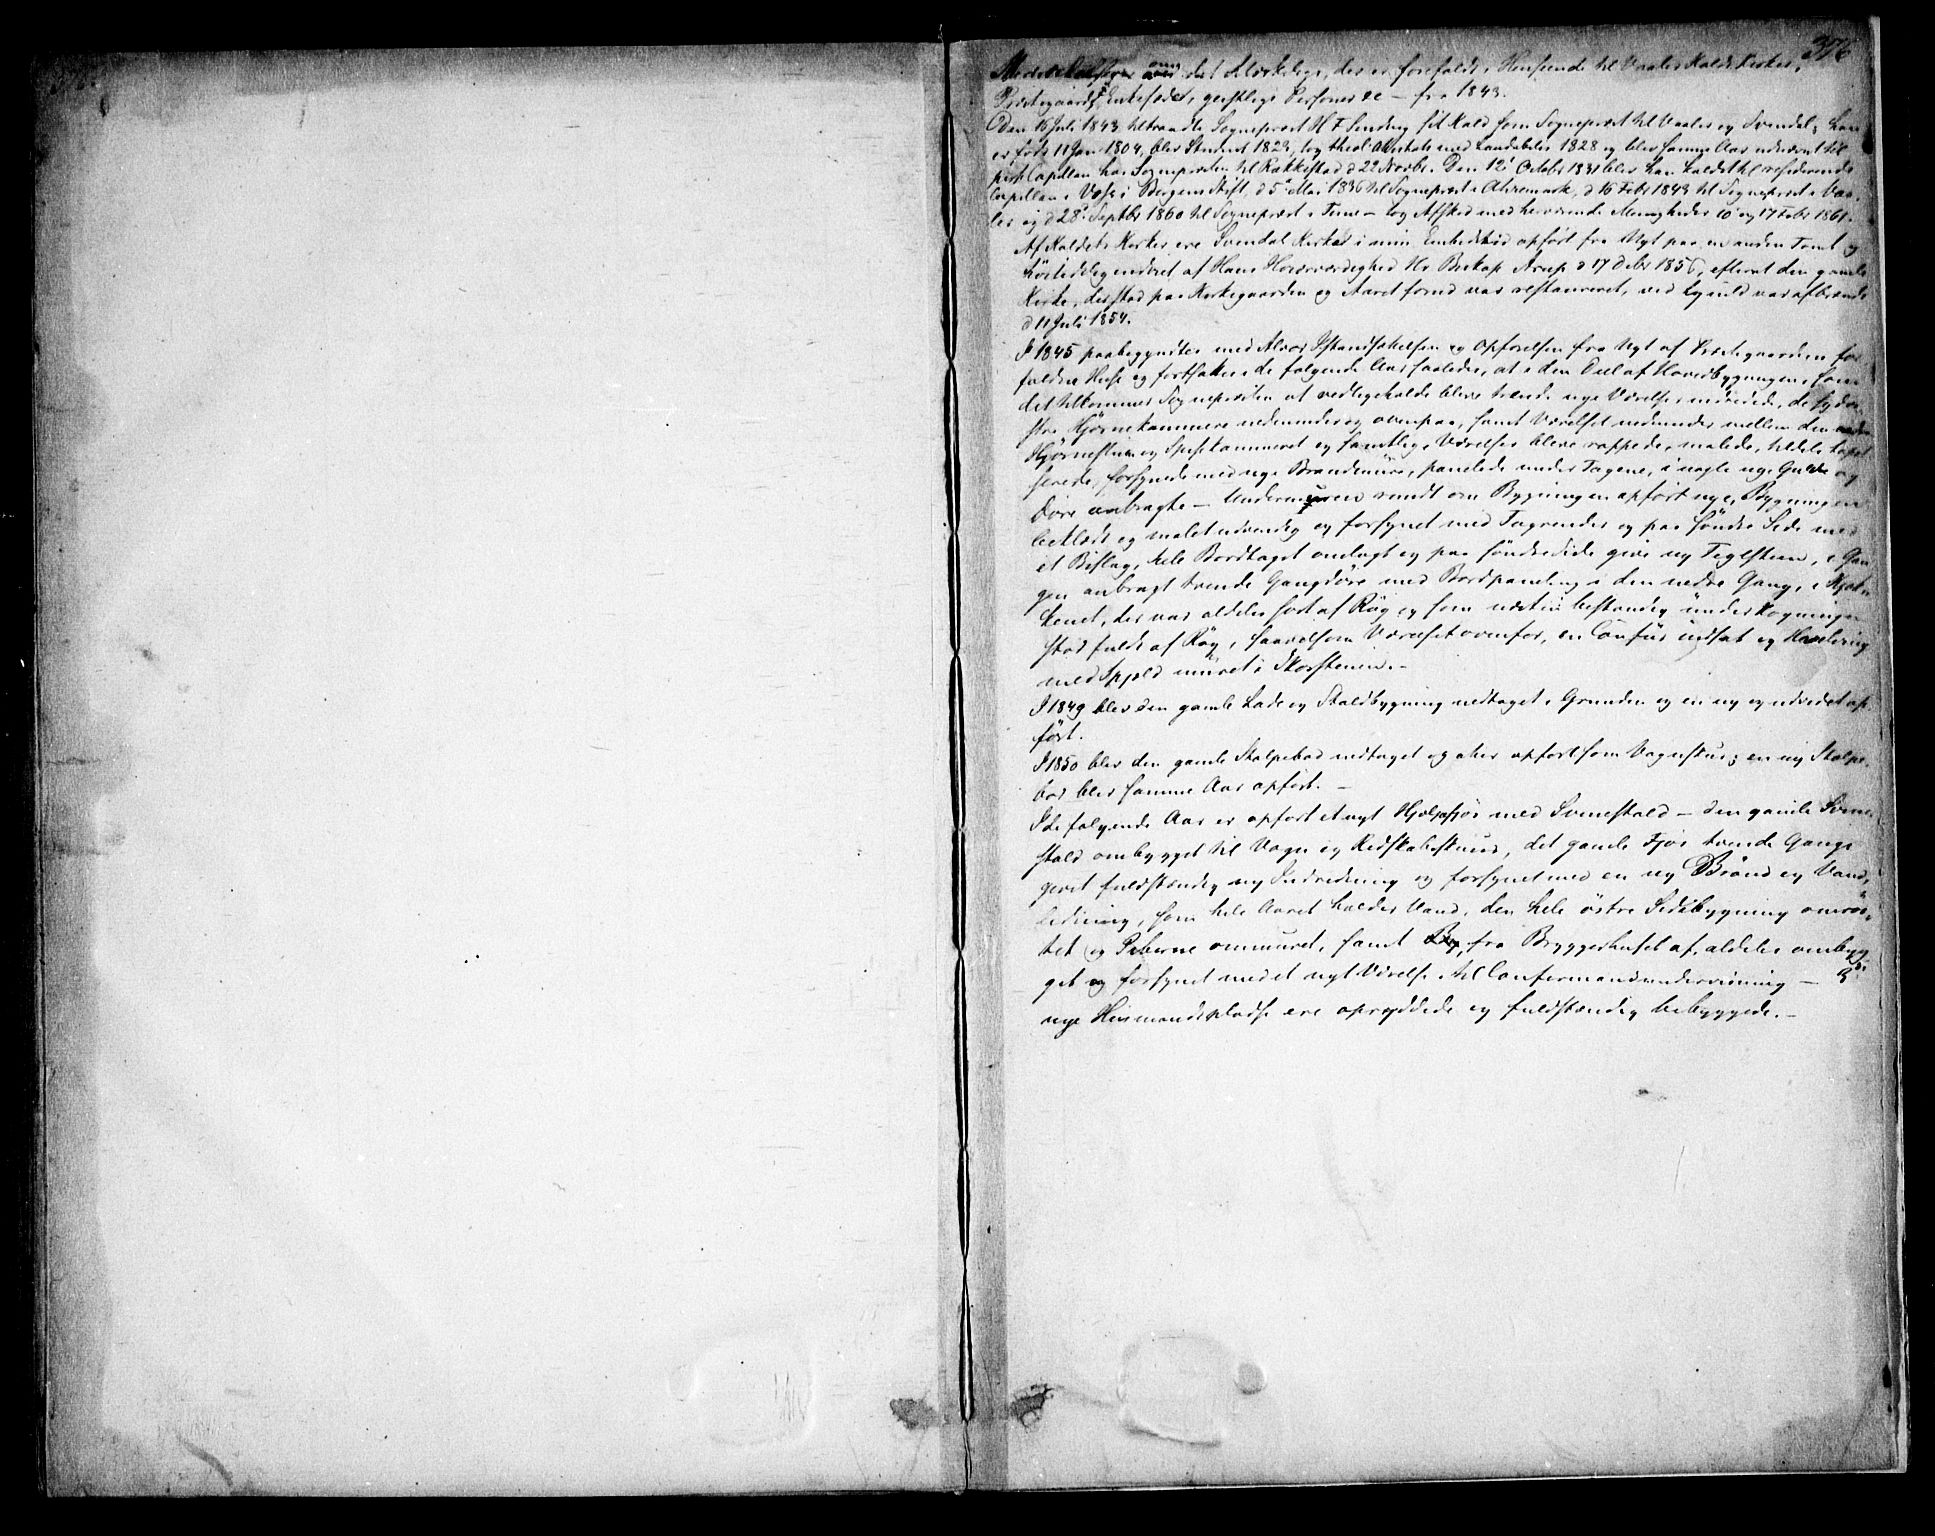 376
det Mærkelige, der er forefaldt i Henseende til Vaaler Kalds Kirker,
Præstegaard, Enkesæder, geistlige Personer &c – fra 1843.
Den 15 Juli 1843 tiltraadte Sognepræst H F Sinding sit Kald som Sognepræst til Vaaler og Svendal; han
er født 11 Jan 1804, blev Student 1823, tog theol. Candidat 1828 og blev samme Aar udnævnt til
pers Capellan hos Sognepræsten til Rakkestad d 22 Novbr. Den 12 October 1831 blev han kaldet til residerende
Capellan i Voss i Bergens Stift, d 5 Mai 1836 til Sognepræst i Aremark, d 16 Febr 1843 til Sognepræst i Vaa-
ler og d 28 Septbr 1860 til Sognepræst i Tune – tog Afsked med herværende Menigheder 10 og 17 Febr 1861.
Af Kaldets Kirker ere Svendal Kirke i min Embedstid opført fra Nyt paa en anden Tomt og
høitideligen indviet af Hans Høiærværdighed Hr Biskop Arup d 17 Debr 1856, efterat den gamle
Kirke, der stod paa Kirkegaarden og Aaret forud var restaureret, ved Lynild var afbrændt
d 11 Juli 1854.
I 1845 paabegyndtes med Alvor Istandsættelsen og Opførelsen fra Nyt af Præstegaardens for-
faldne Huse og fortsattes i de følgende Aar saaledes, at i den Deel af Hovedbygningen, som
det tilkommer Sognepræsten at vedligeholde bleve trende nye Værelser indredede, de sydve-
stre Hjørnekammere nedenunder og ovenpaa, samt Værelset nedenunder mellem den
Hjørnestue og Spisekammeret og samtlige Værelser bleve rappede, malede, tildels tapet-
serede, forsynede med nye Brandmure, panelede under Tagene, i nogle nye Gulve og
Døre anbragte – Undermuren rundt om Bygningen opført nye, Bygningen
beklædt og malet udvendig og forsynet med Tagrender og paa Søndre Side med
et Bislag, hele Bordtaget omlagt og paa søndre Side givet ny Teglsteen, i Gan-
gen anbragt trende Gangdøre med Bordpaneling i den nedre Gang, i Kjøk-
kenet, der var aldeles sort af Røg og som næsten bestandig under Kogningen
stod fuldt af Røg, saavelsom Værelset ovenfor, en Comfur indsat og
med Spjeld muret i Skorstenen. –
I 1849 blev den gamle Lade og Staldbygning nedtaget i Grunden og en ny og udvidet op-
ført.
I 1850 blev den gamle Stolpebod nedtaget og atter opført som Vognskur; en ny Stolpe-
bod blev samme Aar opført. –
I de følgende Aar er opført et nyt Hjelpefjøs med Svinestald – den gamle Svine-
stald ombygget til Vogn og Redskabsskuur, det gamle Fjøs trende Gange
givet fuldstændig ny Indredning og forsynet med en ny Brønd og Vand-
ledning, som hele Aaret holder Vand, den hele østre Sidebygning omrøs-
tet og Piberne ommuret, samt fra Bryggerhuset af, aldeles ombyg-
get og forsynet med et nyt Værelse til Confirmandundervisning – 3de
nye Huusmandspladse ere opryddede og fuldstændig bebyggede. –